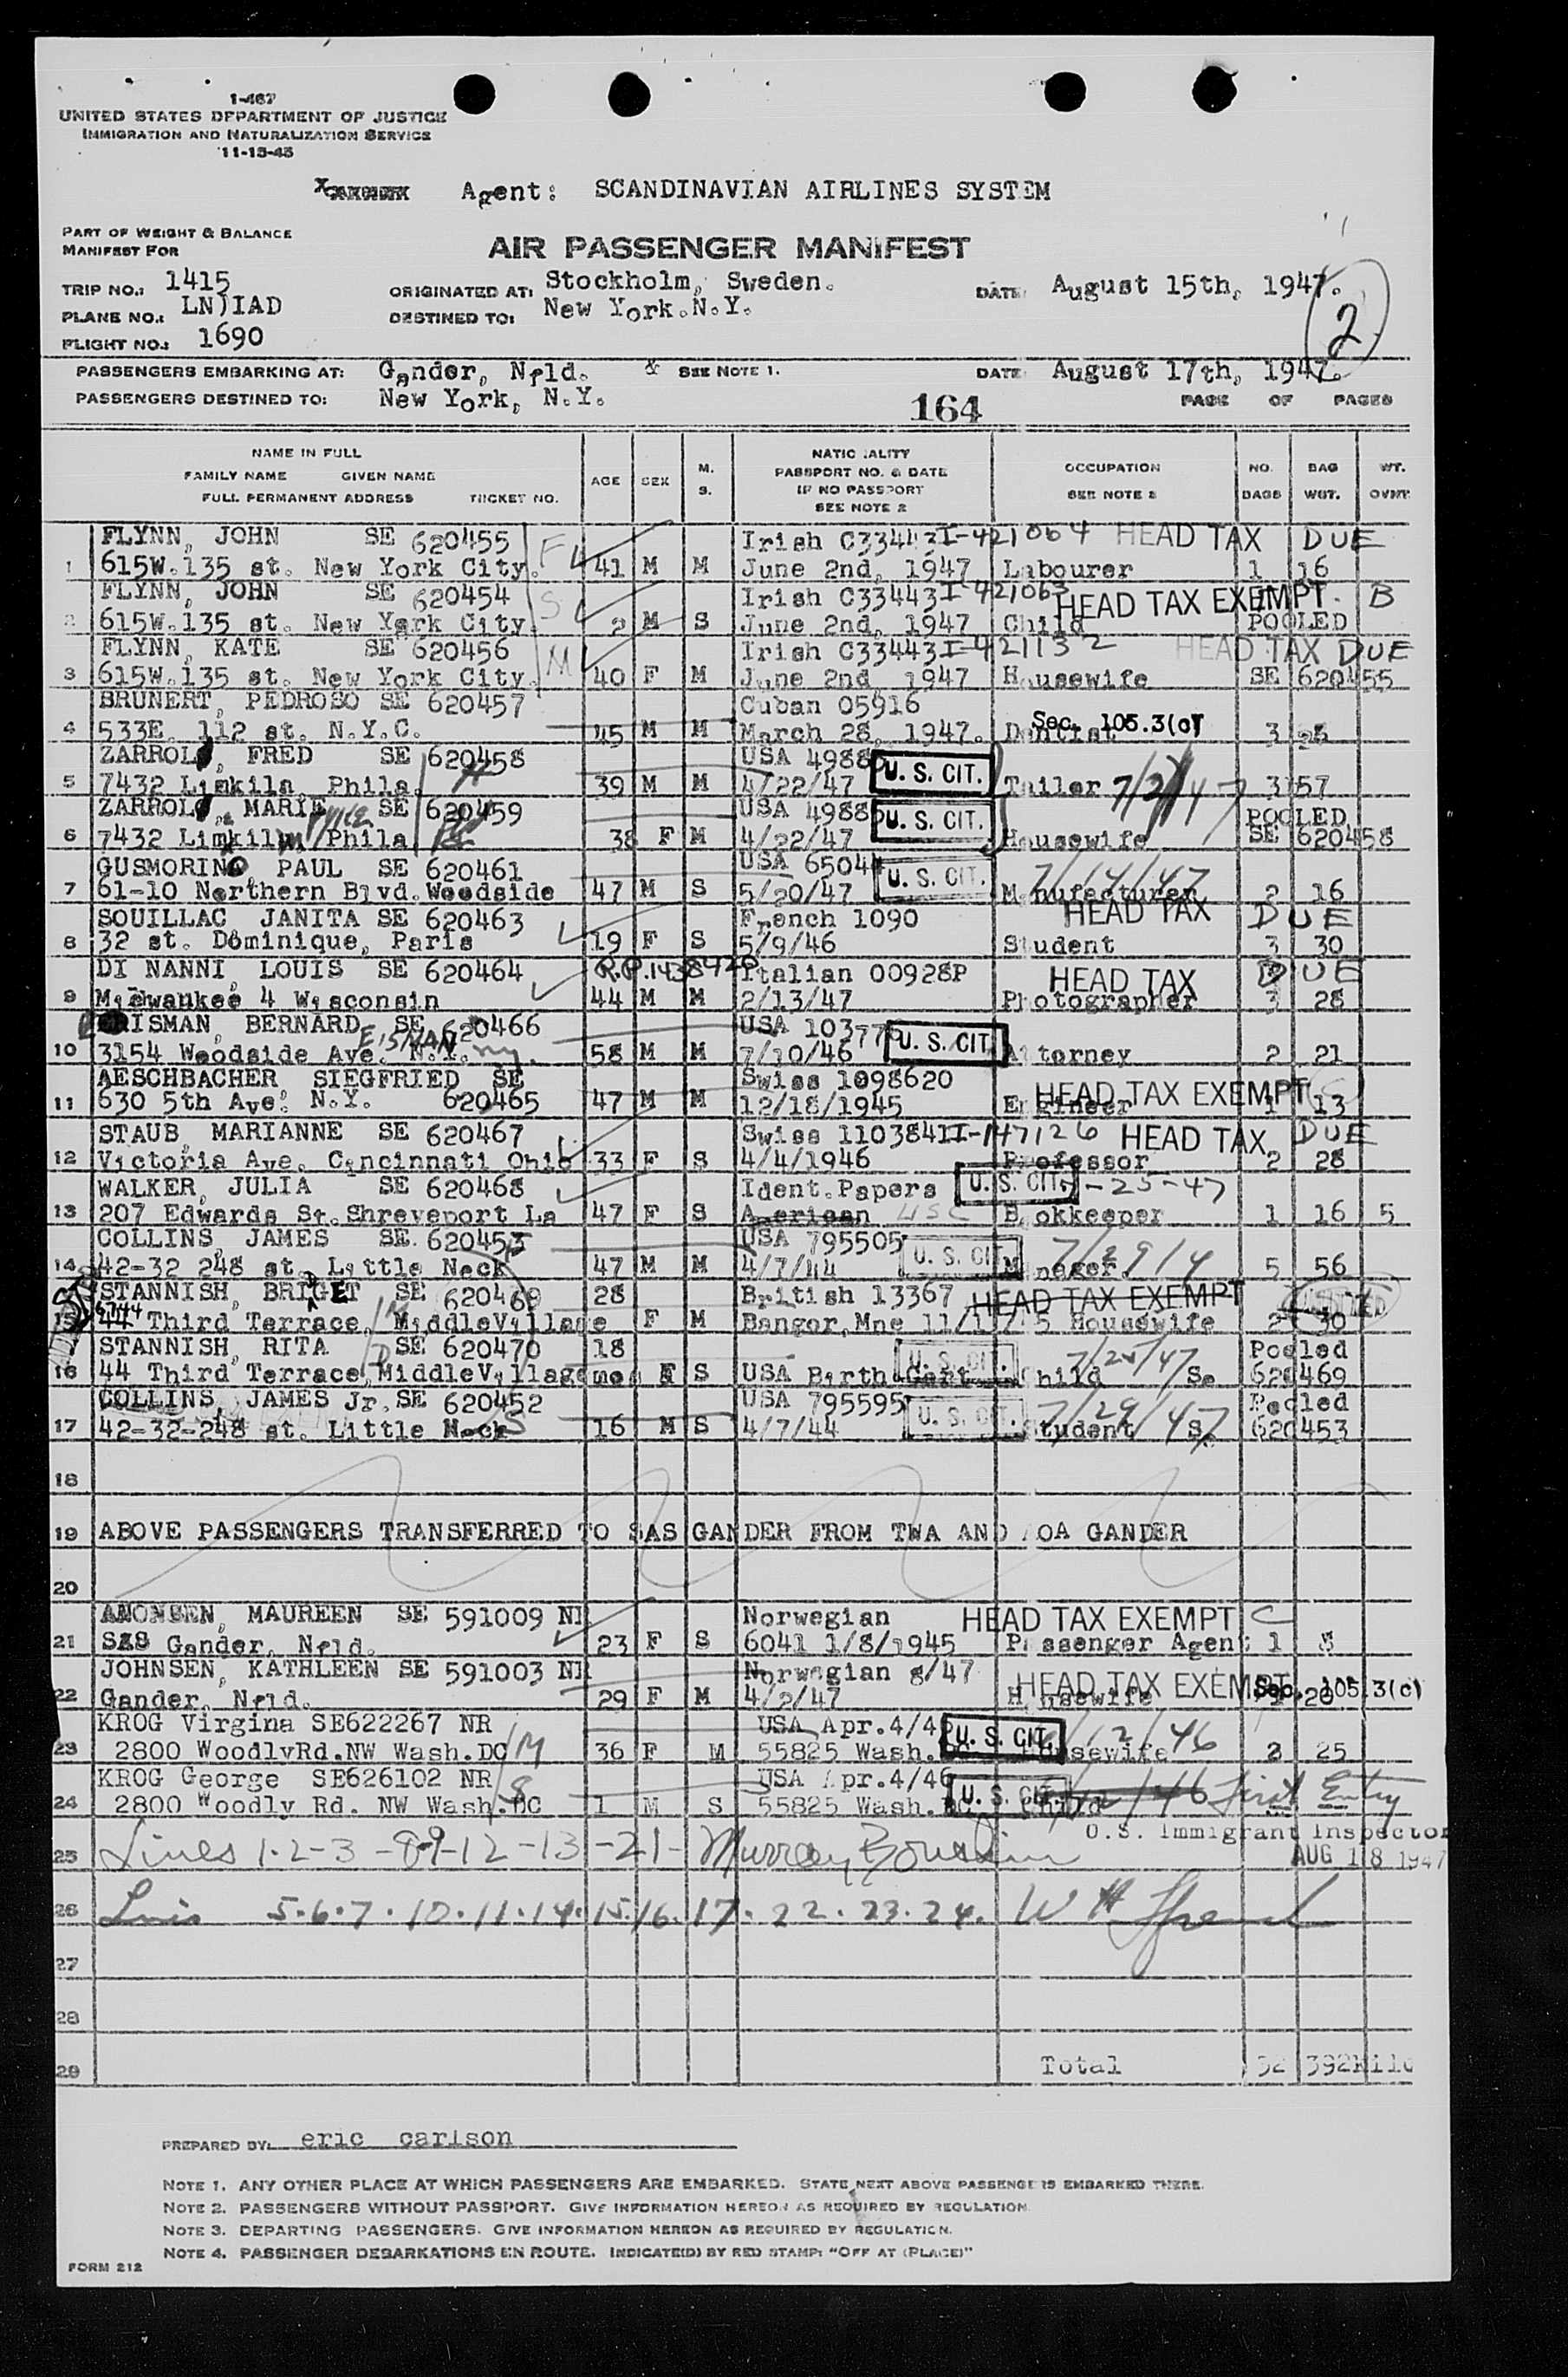 1-467
UNITED STATES DEPARTMENT OF JUSTICE
IMMIGRATION AND NATURALIZATION SERVICE
11-15-45
Agent: SCANDINAVIAN AIRLINES SYSTEM
PART OF WEIGHT & BALANCE
MANIFEST FOR
AIR PASSENGER MANIFEST
TRIP NO.: 1415 ORIGINATED AT: Stockholm, Sweden. DATE August 15th, 1947.
PLANE NO.: LN)IAD DESTINED TO: New York.N.Y.
FLIGHT NO.: 1690
2
PASSENGERS EMBARKING AT: Gander, Nfld. & SEE NOTE 1. DATE August 17th, 1947.
PASSENGERS DESTINED TO: New York, N.Y. 164 PAGE OF PAGES
NAME IN FULL
FAMILY NAME GIVEN NAME
FULL PERMANENT ADDRESS TICKET NO. AGE SEX M. S. NATIONALITY PASSPORT NO. & DATE IF NO PASSPORT SEE NOTE 2 OCCUPATION SEE NOTE 2 NO. BAGS BAG WGT. WT. OVNT.
FLYNN, JOHN SE 620455 F Irish C33443 I-421064 HEAD TAX DUE
1 615W.135 st. New York City. 41 M M June 2nd, 1947 Labourer 1 16
FLYNN, JOHN SE 620454 S Irish C33443 I-421063 HEAD TAX EXEMPT. B
2 615W.135 st. New York City. 2 M S June 2nd, 1947 Child POOLED
FLYNN, KATE SE 620456 M Irish C33443 I-421132 HEAD TAX DUE
3 615W.135 st. New York City. 40 F M June 2nd, 1947 Housewife SE 620455
BRUNERT, PEDROSO SE 620457 Cuban 05916
4 533E. 112 st. N.Y.C. 45 M M March 28, 1947. Dentist Sec. 105.3(c) 3 25
ZARROL, FRED SE 620458 H USA 4988 U. S. CIT.
5 7432 Limkila, Phila. 39 M M 4/22/47 Tailer 3 57
ZARROL, MARIE SE 620459 USA 4988 U. S. CIT. POOLED
6 7432 Limkiln Phila 38 F M 4/22/47 Housewife SE 620458
GUSMORINO, PAUL SE 620461 USA 6504 U. S. CIT. 7/14/47
7 61-10 Northern Blvd.Woodside 47 M S 5/20/47 Manufacturer 2 16
SOUILLAC JANITA SE 620463 French 1090 HEAD TAX DUE
8 32 st. Dominique, Paris 19 F S 5/9/46 Student 3 30
DI NANNI, LOUIS SE 620464 R.P.1438420 Italian 00928P HEAD TAX DUE
9 Milwaukee 4 Wisconsin 44 M M 2/13/47 Photographer 3 28
ERISMAN, BERNARD SE 620466 EISMAN USA 103776 U. S. CIT.
10 3154 Woodside Ave. N.Y. 58 M M 7/10/46 Attorney 2 21
AESCHBACHER SIEGFRIED SE Swiss 1098620 HEAD TAX EXEMPT
11 630 5th Ave. N.Y. 620465 47 M M 12/18/1945 Engineer 1 13
STAUB, MARIANNE SE 620467 Swiss 1103841 I-147126 HEAD TAX DUE
12 Victoria Ave. Cincinnati Ohio 33 F S 4/4/1946 Professor 2 28
WALKER, JULIA SE 620468 Ident.Papers U. S. CIT. -25-47
13 207 Edwards St.Shreveport La 47 F S American USC Bookkeeper 1 16 5
COLLINS, JAMES SE. 620453 USA 795505 U. S. CIT.
14 42-32 248 st. Little Neck 47 M M 4/7/44 Maneger 5 56
STANNISH, BRIDGET SE 620469 28 British 13367 HEAD TAX EXEMPT
15 6744 Third Terrace, MiddleVillage F M Bangor,Mne Housewife 2 30
STANNISH, RITA SE 620470 18 U. S. CIT. 7/25/47 Pooled
16 44 Third Terrace MiddleVillage mos F S USA Birth Cert Child Se 620469
COLLINS, JAMES Jr. SE 620452 USA 795595 U. S. CIT. 7/29/47 Pooled
17 42-32-248 st. Little Neck S 16 M S 4/7/44 Student Se 620453
18
19 ABOVE PASSENGERS TRANSFERRED TO SAS GANDER FROM TWA AND AOA GANDER
20
AMONSEN, MAUREEN SE 591009 NR Norwegian HEAD TAX EXEMPT C
21 SAS Gander, Nfld. 23 F S 6041 1/8/1945 Passenger Agent 1 8
JOHNSEN, KATHLEEN SE 591003 NR Norwegian 8/47 HEAD TAX EXEMPT Sec. 105.3(c)
22 Gander, Nfld. 29 F M 4/2/47 Housewife 1 20
KROG Virgina SE622267 NR M USA Apr.4/46 U. S. CIT. /12/46
23 2800 WoodlyRd.NW Wash.DC 36 F M 55825 Wash.DC Housewife 2 25
KROG George SE626102 NR S USA Apr.4/46 U. S. CIT. First Entry
24 2800 Woodly Rd. NW Wash.DC 1 M S 55825 Wash.DC Child
U.S. Immigrant Inspector
25 Lines 1-2-3-8-9-12-13-21- Murray AUG 18 1947
26 Lines 5.6.7.10.11.14.15.16.17.22.23.24. W H
27
28
29 Total 32 392Kilo
PREPARED BY: eric carlson
NOTE 1. ANY OTHER PLACE AT WHICH PASSENGERS ARE EMBARKED. STATE NEXT ABOVE PASSENGERS EMBARKED THERE.
NOTE 2. PASSENGERS WITHOUT PASSPORT. GIVE INFORMATION HEREON AS REQUIRED BY REGULATION.
NOTE 3. DEPARTING PASSENGERS. GIVE INFORMATION HEREON AS REQUIRED BY REGULATION.
NOTE 4. PASSENGER DEBARKATIONS EN ROUTE. INDICATE(D) BY RED STAMP: "OFF AT (PLACE)"
FORM 212